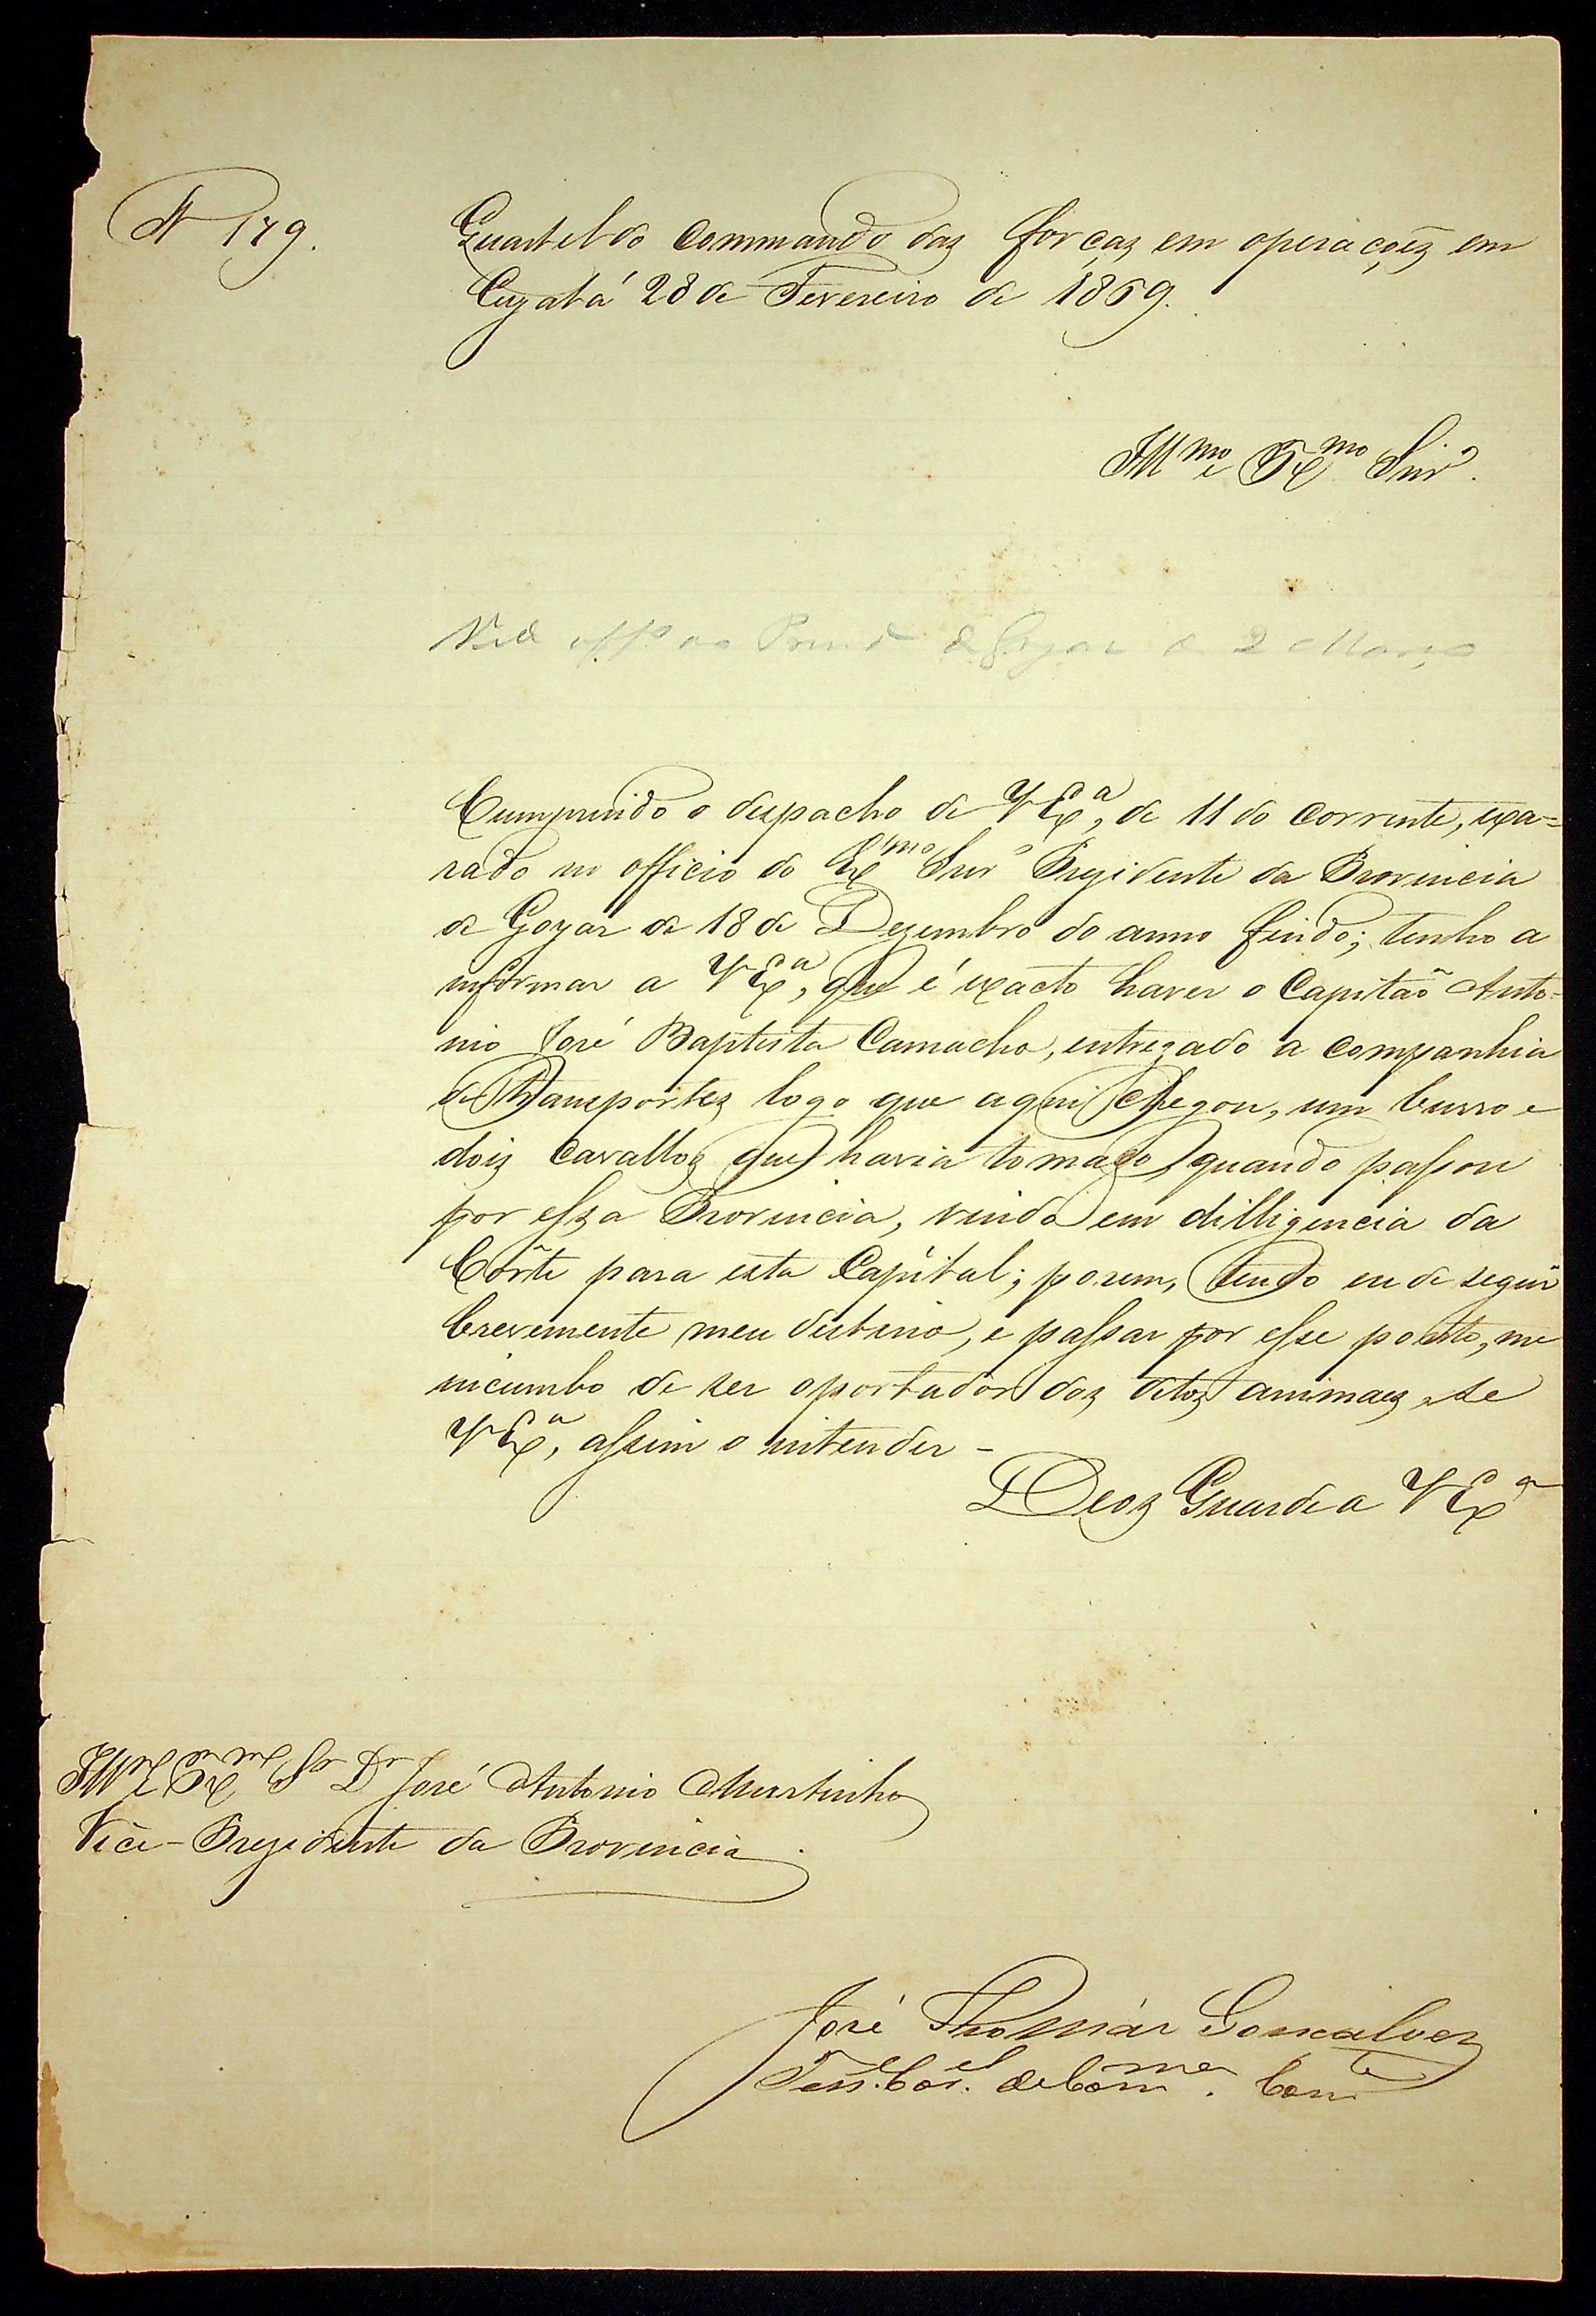 N 179.
Quartel do Commando das forças em operações em
Cuyabá 28 de Fevereiro de 1869.
Illmo e Exmo Snr.
Vide offo ao Presid de Goyaz de 2 Março
Cumprindo o despacho de VExa, de 11 do corrente, exa=
rado no officio do Exmo Snr Prezidente da Provincia
de Goyaz de 18 de Dezembro do anno findo; tenho a
informar a VExa, que é exacto haver o Capitão Anto=
nio José Baptista Camacho, entregado a companhia
de transportes logo que aqui chegou, um burro e
dois cavallos que havia tomado quando passou
por essa Provincia, vindo em dilligencia da
Côrte para esta Capital; porem, tendo eu de seguir
brevemente meu destino, e passar por esse ponto, me
incumbo de ser o portador dos ditos animaes, se
VExa, assim o intender -
Deos Guarde a VExa
Illmo e Exmo Sr Dr José Antonio Murtinho
Vice-Prezidente da Provincia.
José Thomáz Gonçalves
Tene. Corel. de Comma. Come